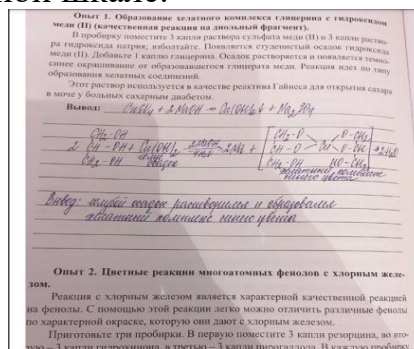 ной шкале.
Опыт 1. Образование хелатного комплекса глицерина с гидроксидом
меди (II) (качественная реакция на диольный фрагмент).
В пробирку поместите 3 капли раствора сульфата меди (II) и 3 капли раство-
ра гидроксида натрия, взболтайте. Появляется студенистый осадок гидроксида
меди (II). Добавьте 1 каплю глицерина. Осадок растворяется и появляется темно-
синее окрашивание от образовавшегося глицерата меди. Реакция идет по типу
образования хелатных соединений.
Этот раствор используется в качестве реактива Гайнеса для открытия сахара
в моче у больных сахарным диабетом.
Вывод: CuSO4 + 2NaOH → Cu(OH)2↓ + Na2SO4
CH2-OH CH2-O O-CH2
2 CH-OH + Cu(OH)2 2NaOH 2Na + CH-O Cu O-CH
CH2-OH осадок CH2-OH HO-CH2
хелатный комплекс
синего цвета
Вывод: голубой осадок растворился и образовался
хелатный комплекс синего цвета
Опыт 2. Цветные реакции многоатомных фенолов с хлорным желе-
зом.
Реакция с хлорным железом является характерной качественной реакцией
на фенолы. С помощью этой реакции легко можно отличить различные фенолы
по характерной окраске, которую они дают с хлорным железом.
Приготовьте три пробирки. В первую поместите 3 капли резорцина, во вто-
рую – 3 капли гидрохинона, в третью – 3 капли пирогаллола. В каждую пробирку